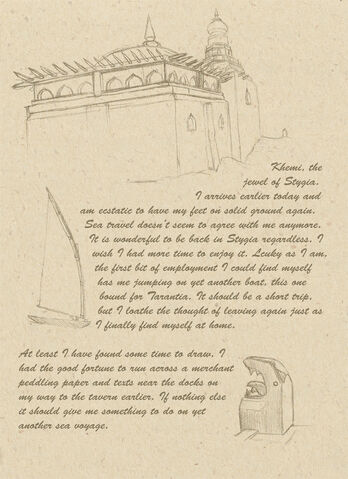 Khemi, the
jewel of Stygia.
I arrives earlier today and
am ecstatic to have my feet on solid ground again.
Sea travel doesn't seem to agree with me anymore.
It is wonderful to be back in Stygia regardless. I
wish I had more time to enjoy it. Lcuky as I am,
the first bit of employment I could find myself
has me jumping on yet another boat, this one
bound for Tarantia. It should be a short trip,
but I loathe the thought of leaving again just as
I finally find myself at home.
At least I have found some time to draw. I
had the good fortune to run across a merchant
peddling paper and texts near the docks on
my way to the tavern earlier. If nothing else
it should give me something to do on yet
another sea voyage.